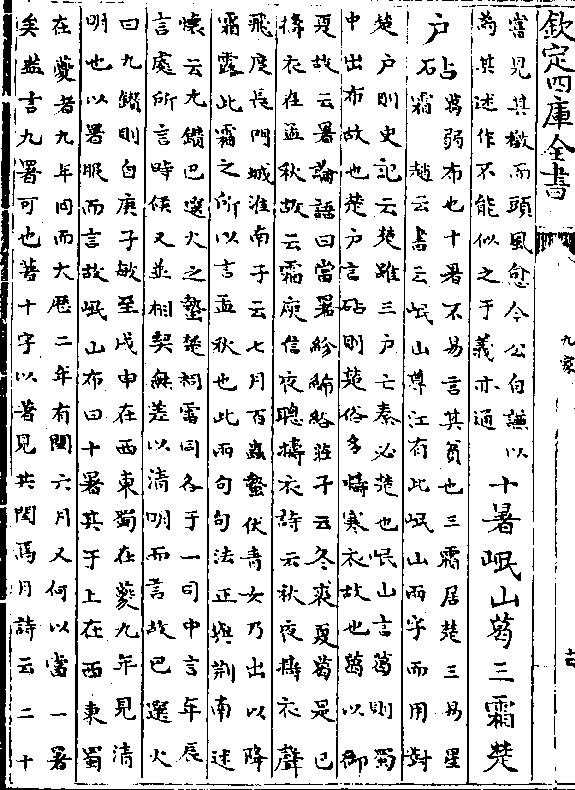 欽定四庫全書
九家
嘗見其檄而頭風愈今公自謙以
為其述作不能似之于義亦通
十暑岷山葛三霜楚
户砧
葛弱布也十暑不易言其貧也三霜居楚三易星
霜 趙云書云岷山導江有此岷山兩字而用對
楚户則史記云楚雖三户亡秦必楚也岷山言葛則蜀
中出布故也楚户言砧則楚俗多擣寒衣故也葛以御
夏故云暑論語曰當暑袗絺綌莊子云冬裘夏葛是已
擣衣在孟秋故云霜庾信夜聽擣衣詩云秋夜擣衣聲
飛度長門城淮南子云七月百蟲蟄伏青女乃出以降
霜露此霜之所以言孟秋也此兩句句法正與荆南述
懷云九鑚巴噀火之蟄楚祠雷同各于一句中言年辰
言處所言時候又並相契無差以清明而言故巴噀火
曰九鑚則自庚子敏至戊申在西東蜀在夔九年見清
明也以暑服而言故岷山布曰十暑其于上在西東蜀
在夔者九年同而大厯二年有閏六月又何以當一暑
矣葢言九暑可也著十字以著見其閏焉月詩云二十